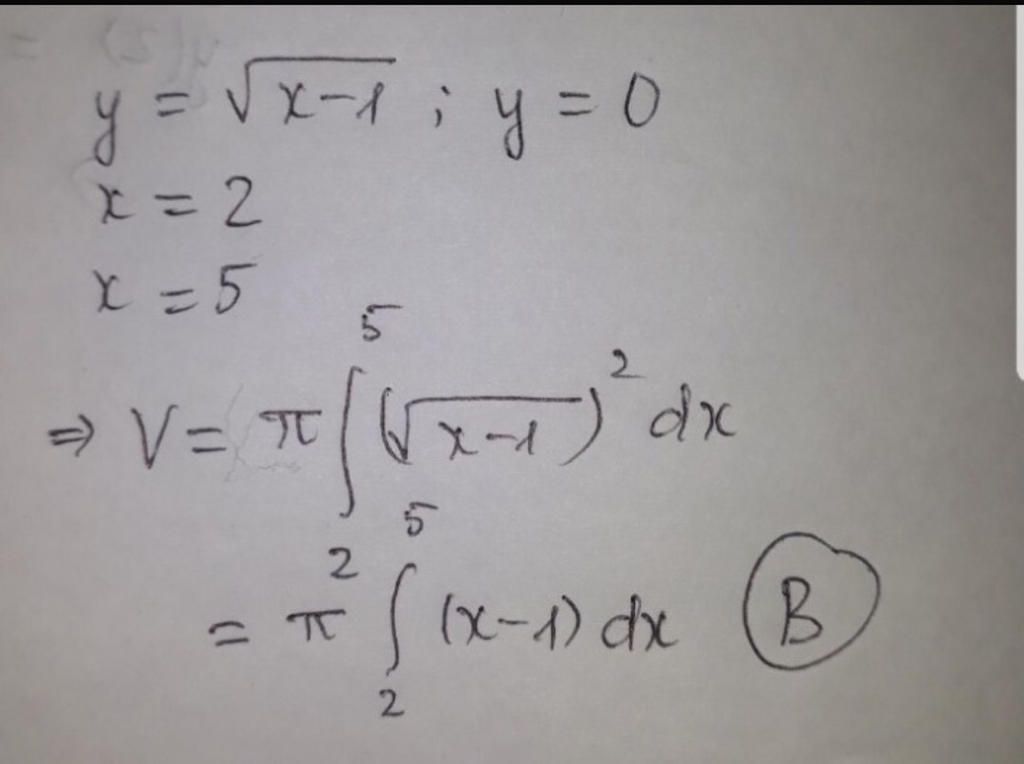 y = √(x-1) ; y = 0
x = 2
x = 5
⇒ V = π ∫₂⁵ (√(x-1))² dx
= π ∫₂⁵ (x-1) dx B